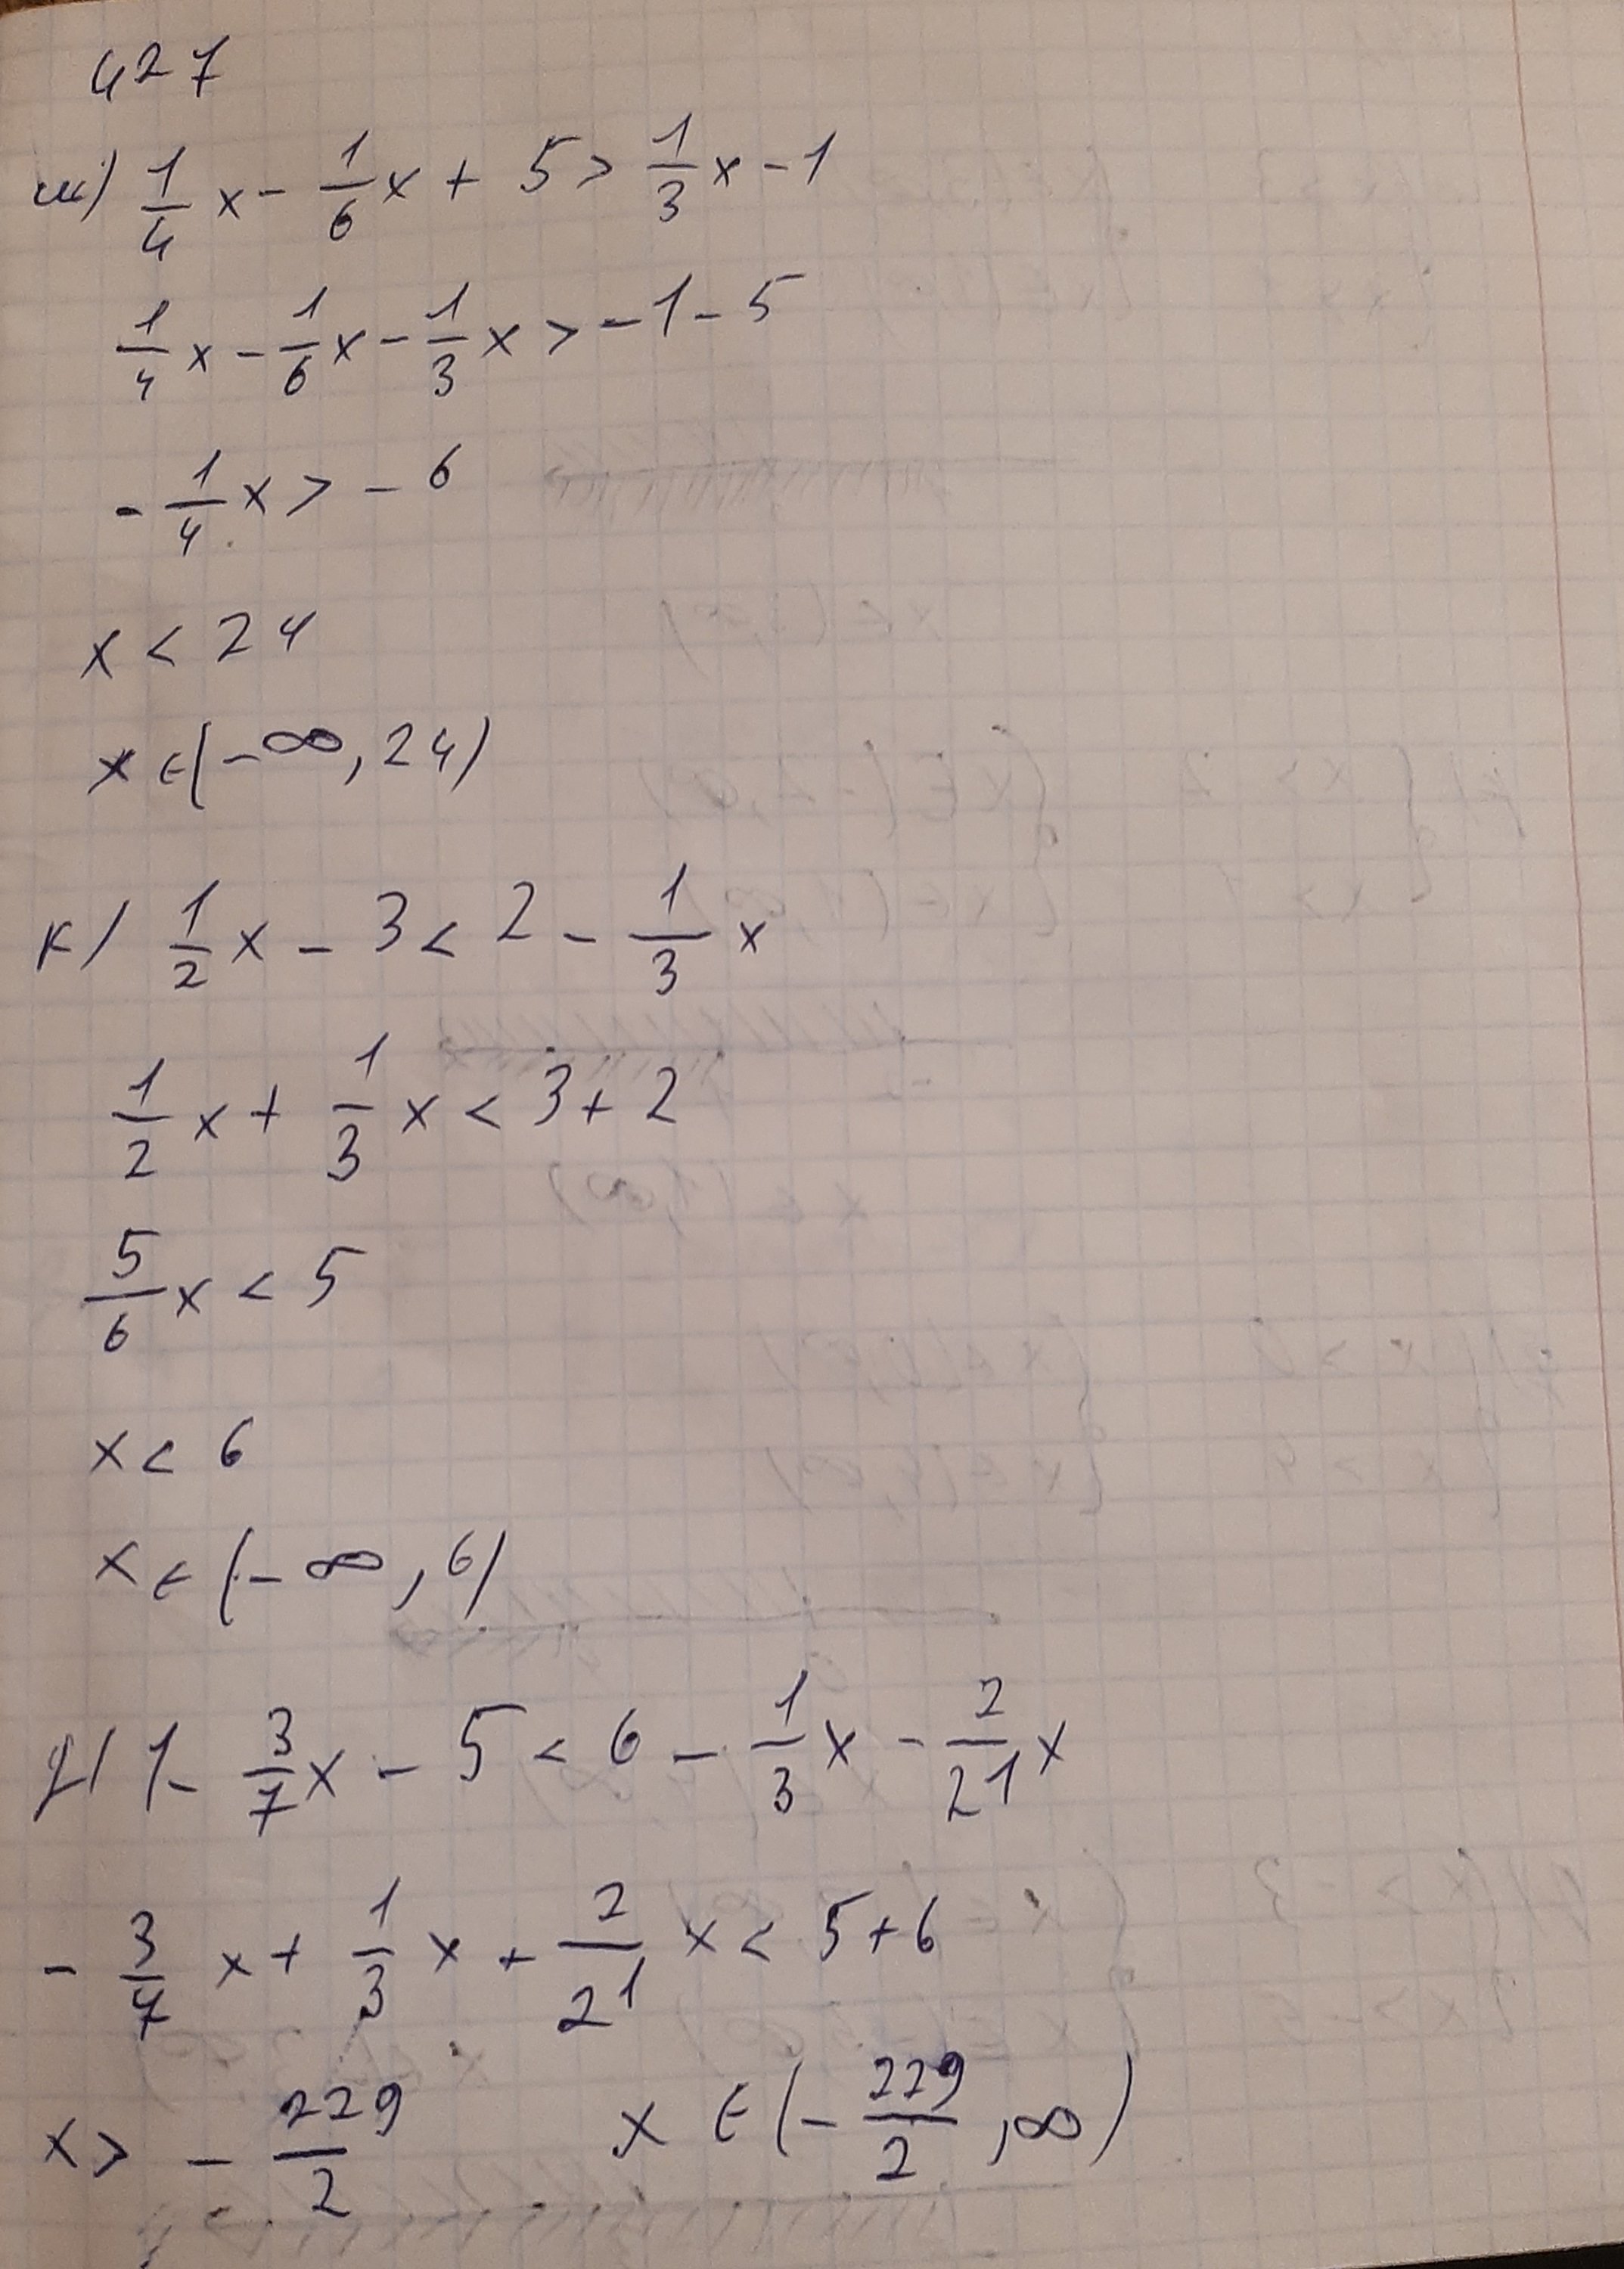 427
ж) 1/4 x - 1/6 x + 5 > 1/3 x - 1
1/4 x - 1/6 x - 1/3 x > - 1 - 5
- 1/4 x > - 6
x < 24
x ∈ (-∞, 24)
к) 1/2 x - 3 < 2 - 1/3 x
1/2 x + 1/3 x < 3 + 2
5/6 x < 5
x < 6
x ∈ (-∞, 6)
д) 1 - 3/7 x - 5 < 6 - 1/3 x - 2/21 x
- 3/7 x + 1/3 x + 2/21 x < 5 + 6
x > - 229/2 x ∈ (- 229/2, ∞)